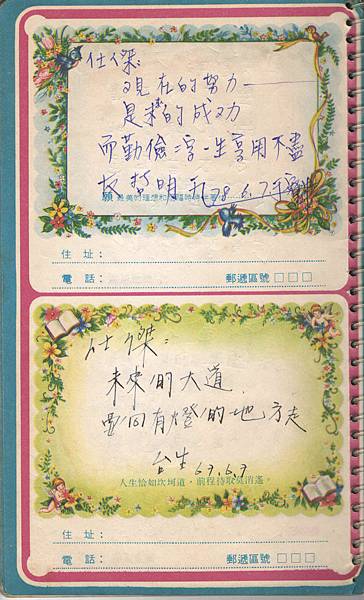 仕傑:
現在的努力
是未來的成功
而勤儉二字一生享用不盡
友 哲明
願 最美的理想和
住 址:
電 話:
郵遞區號□□□
仕傑:
未來的大道
要向有燈的地方走
台生 67.6.7
人生恰如坎坷道,前程待取莫消遙。
住 址:
電 話:
郵遞區號□□□